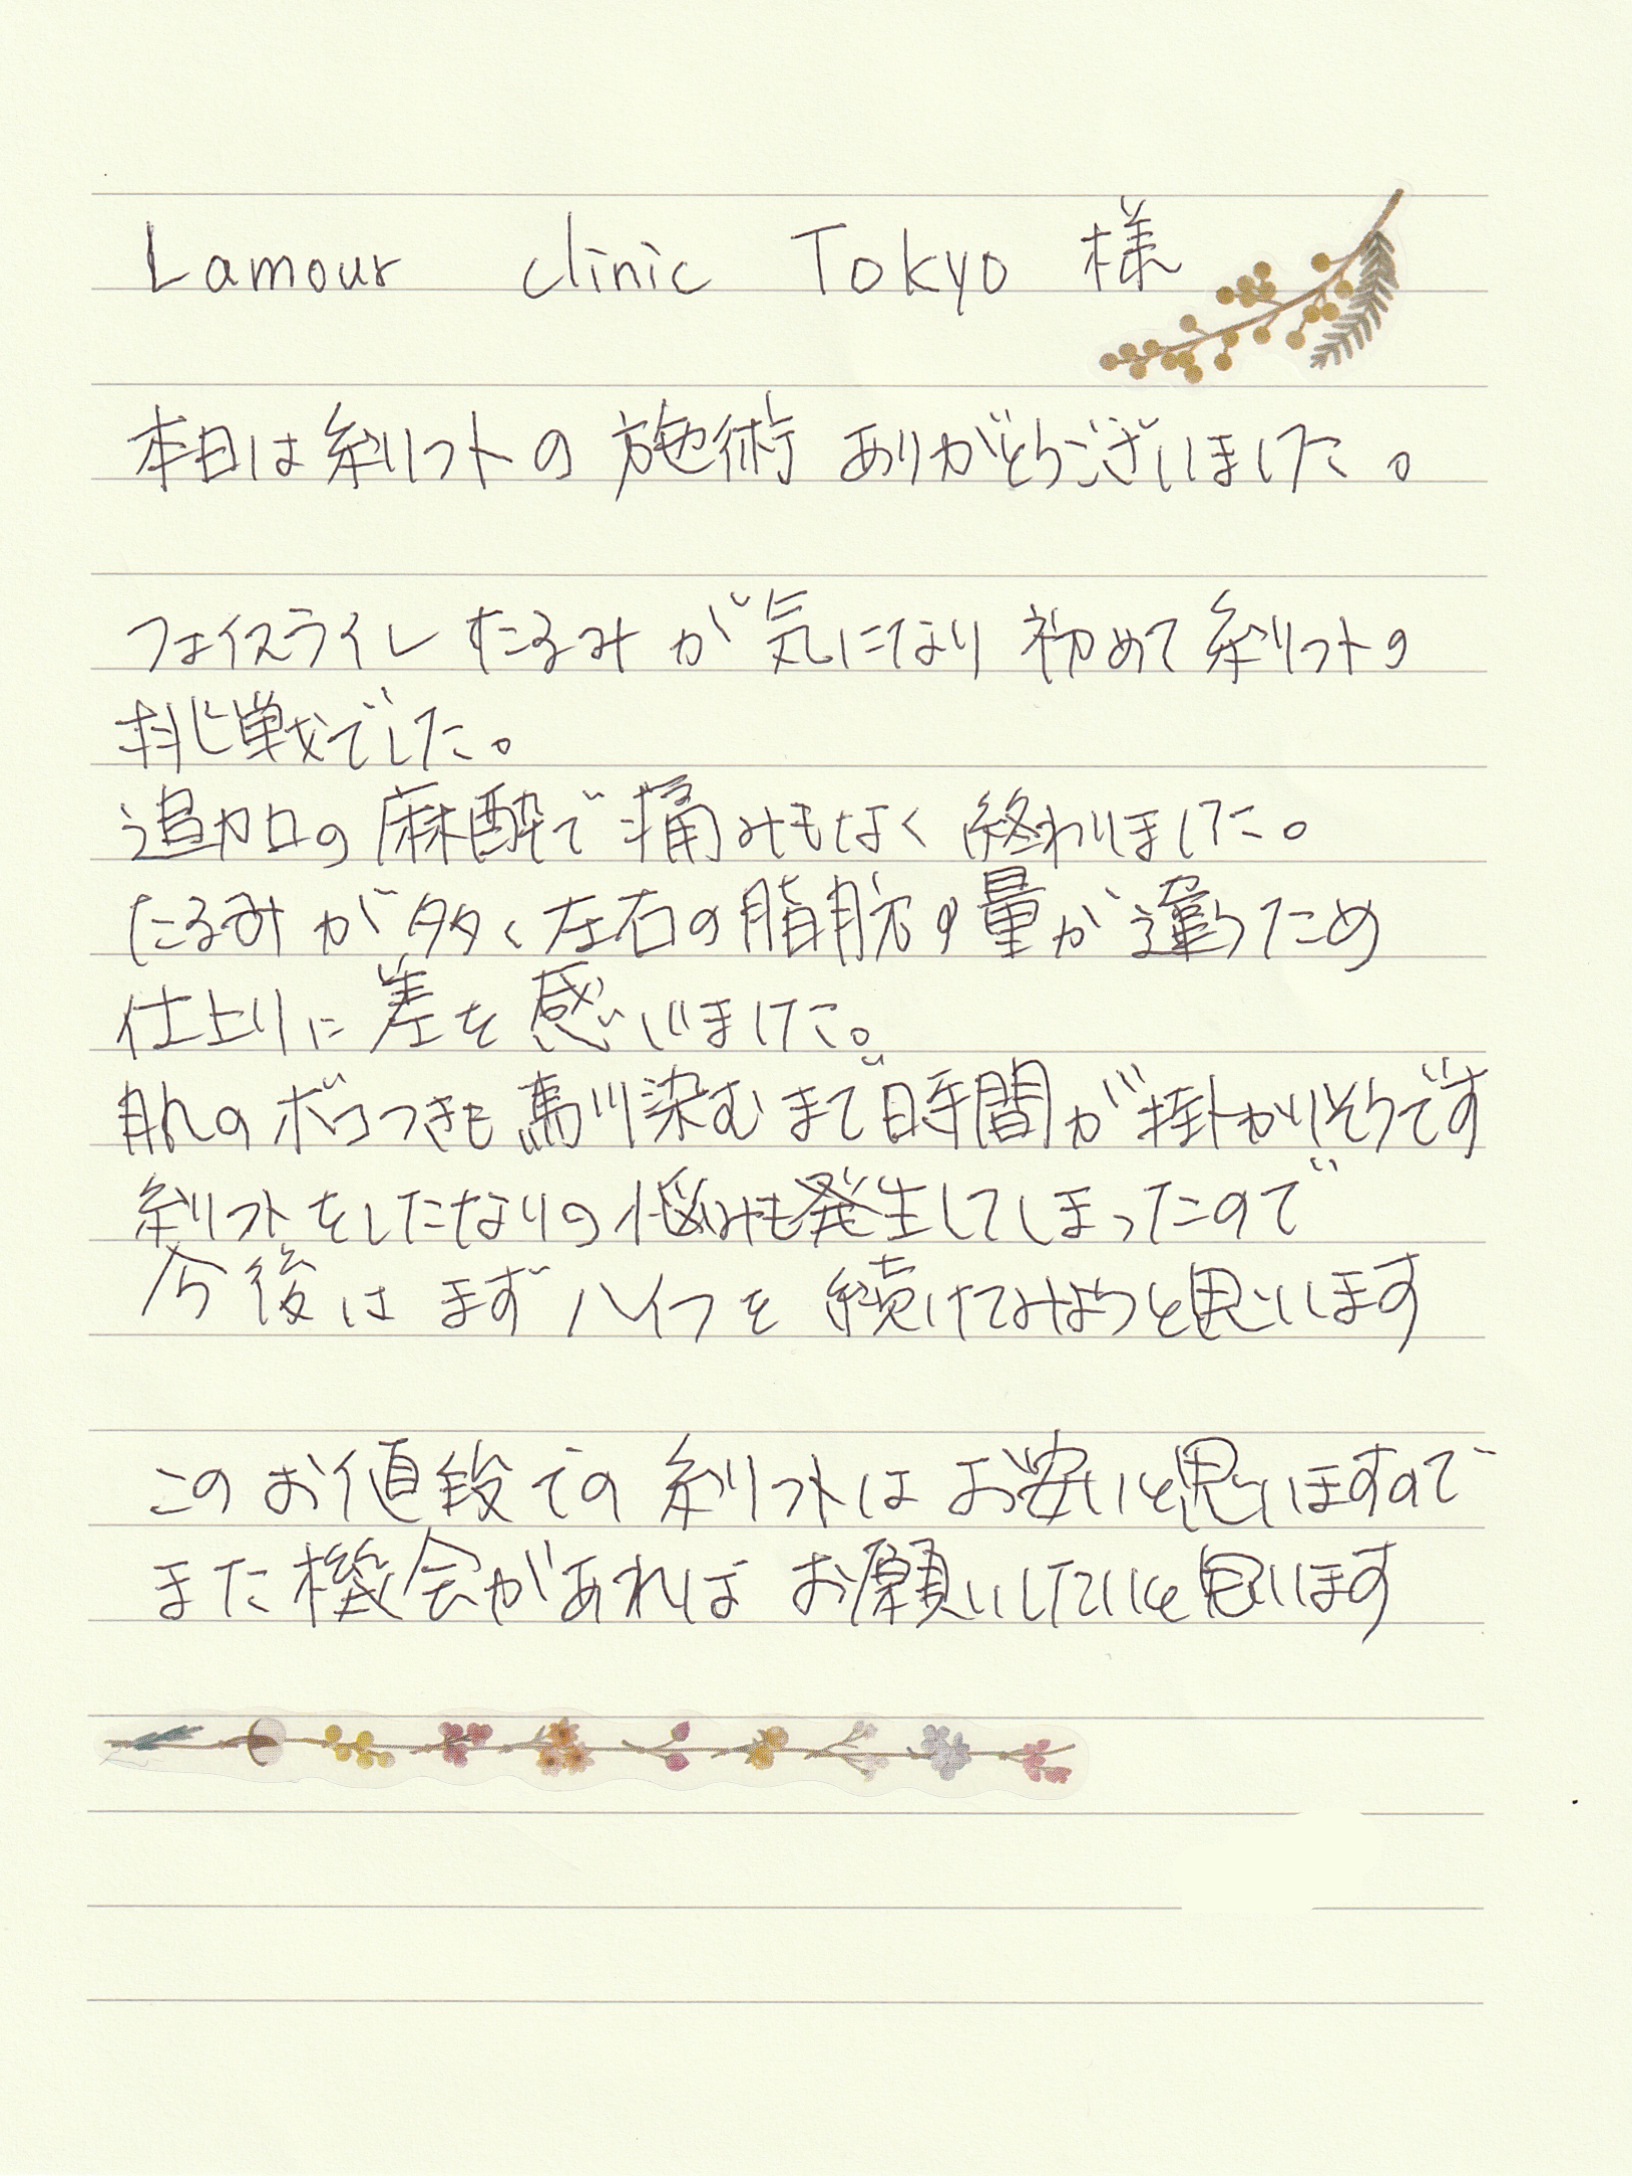 Lamour clinic Tokyo 様
本日は糸リフトの施術ありがとうございました。
フェイスライン たるみが気になり 初めて糸リフトの
挑戦でした。
追加の麻酔で痛みもなく終わりました。
たるみが多く左右の脂肪の量が違うため
仕上りに差を感じました。
肌のボコつきも馴染むまで時間が掛かりそうです
糸リフトをしたなりの悩みも発生してしまったので
今後はまずハイフを続けてみようと思います
このお値段での糸リフトはお安いと思いますので
また機会があればお願いしたいと思います